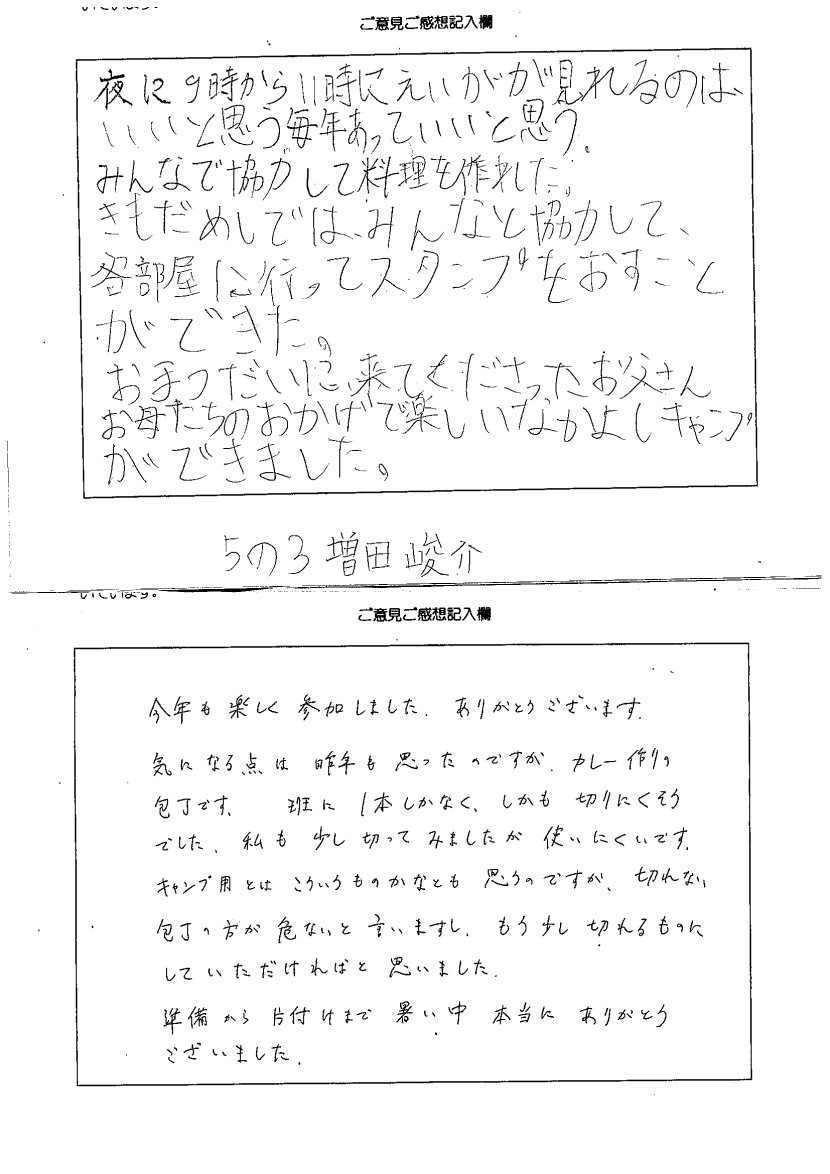 ご意見ご感想記入欄
夜に9時から11時にえいがが見れるのは、
いいと思う毎年あっていいと思う。
みんなで協力して料理を作れた。
きもだめしでは、みんなと協力して、
各部屋に行ってスタンプをおすこと
ができた。
お手つだいに来てくださったお父さん
お母たちのおかげで楽しいなかよしキャンプ
ができました。
5の3 増田 峻介
ご意見ご感想記入欄
今年も楽しく参加しました。ありがとうございます。
気になる点は昨年も思ったのですが、カレー作りの
包丁です。 班に1本しかなく、しかも切りにくそう
でした。私も少し切ってみましたが使いにくいです。
キャンプ用とはこういうものかなとも思うのですが、切れない
包丁の方が危ないと言いますし、もう少し切れるものに
していただければと思いました。
準備から片付けまで暑い中本当にありがとう
ございました。